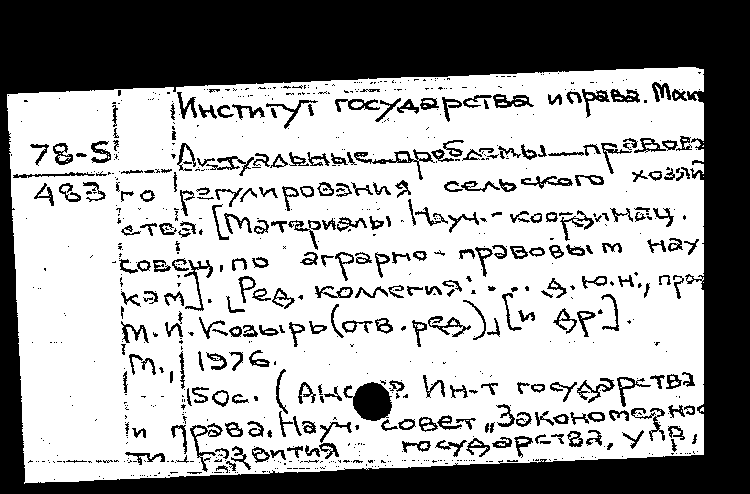 Институт государства и права. Моск
78-5 Актуальные проблемы правово
483 го регулирования сельского хозяй
ства. [Материалы Науч.-координац.
совещ. по аграрно-правовым нау-
кам]. [Ред. коллегия: ... д.ю.н., про
М.И. Козырь (отв. ред.)], [и др.].
М., 1976.
150с. (АН СССР. Ин-т государства
и права. Науч. совет „Закономернос
ти развития государства, упр,